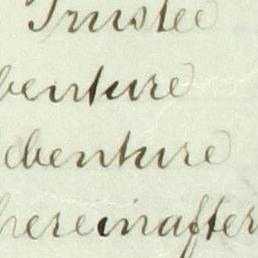 Trustee
benture
ebenture
hereinafter